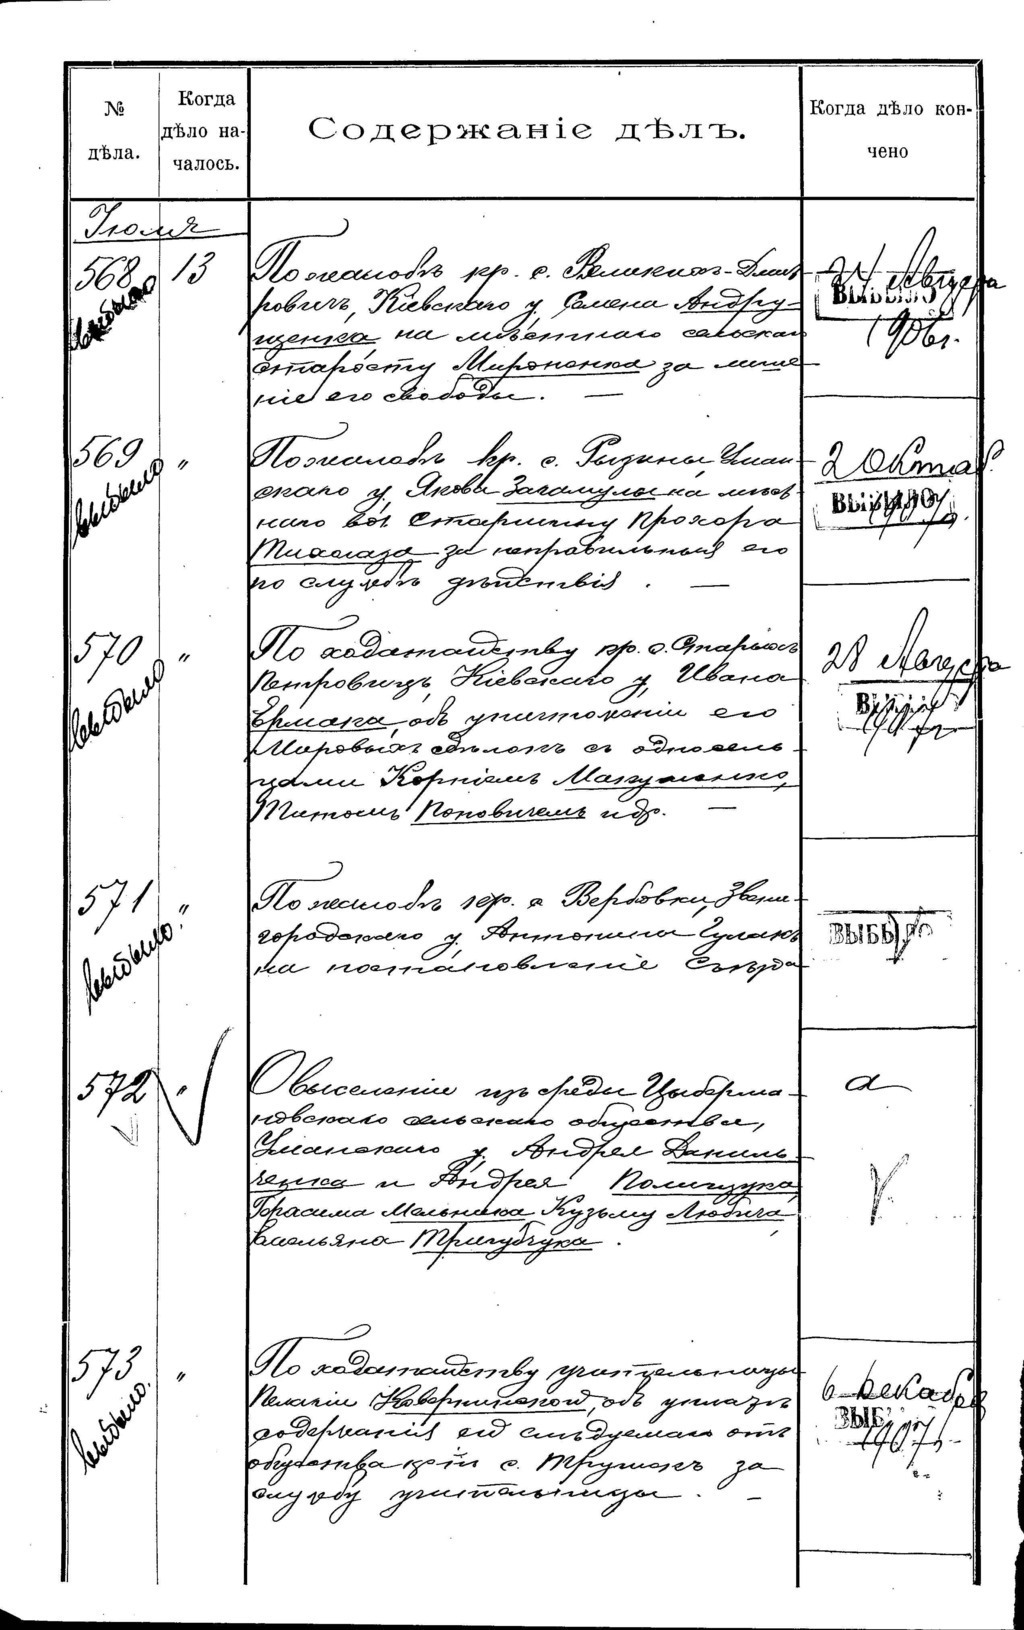 № дѣла.
Когда дѣло на-
чалось.
Содержаніе дѣлъ.
Когда дѣло кон-
чено
Іюля
568 13
выбыло
По жалобѣ кр. с. Великихъ-Дмит
ровичъ, Кіевскаго у, Семена Андру-
щенка на мѣстнаго сельскаго
старосту Мироненка за лише
ніе его свободы. —
24 Августа
ВЫБЫЛО
1906г.
569 "
выбыло
По жалобѣ кр. с. Рызины Уман
скаго у, Якова на мѣст
наго вол старшину Прохора
за неправильныя его
по службѣ дѣйствія . —
2 Октяб.
ВЫБЫЛО
1907г.
570 "
выбыло
По ходатайству кр. с. Старыхъ
Петровицъ, Кіевскаго у, Ивана
Ермака, объ уничтоженіи его
Мировыхъ сдѣлокъ съ односель
цами Корніемъ
Титомъ Поповичемъ и др. —
28 Августа
1907г
571 "
выбыло.
По жалобѣ кр. с Вербовки, Звени
городскаго у, Антонина Гулакъ
на постановленіе Съѣзда
ВЫБЫ
572 "
О выселеніи изъ среды Цыберма-
новскаго сельскаго общества,
Уманскаго у, Андрея Даниль
ченка и Андрея Полищука,
Герасима Мельника Кузьму Любича,
Емельяна Тригубчука .
а
573 "
выбыло.
По ходатайству учительницы
Пелагіи объ уплатѣ
содержанія ей слѣдуемаго отъ
общества с. Трушекъ за
службу учительницы . —
6 декабря
ВЫБ
1907г.